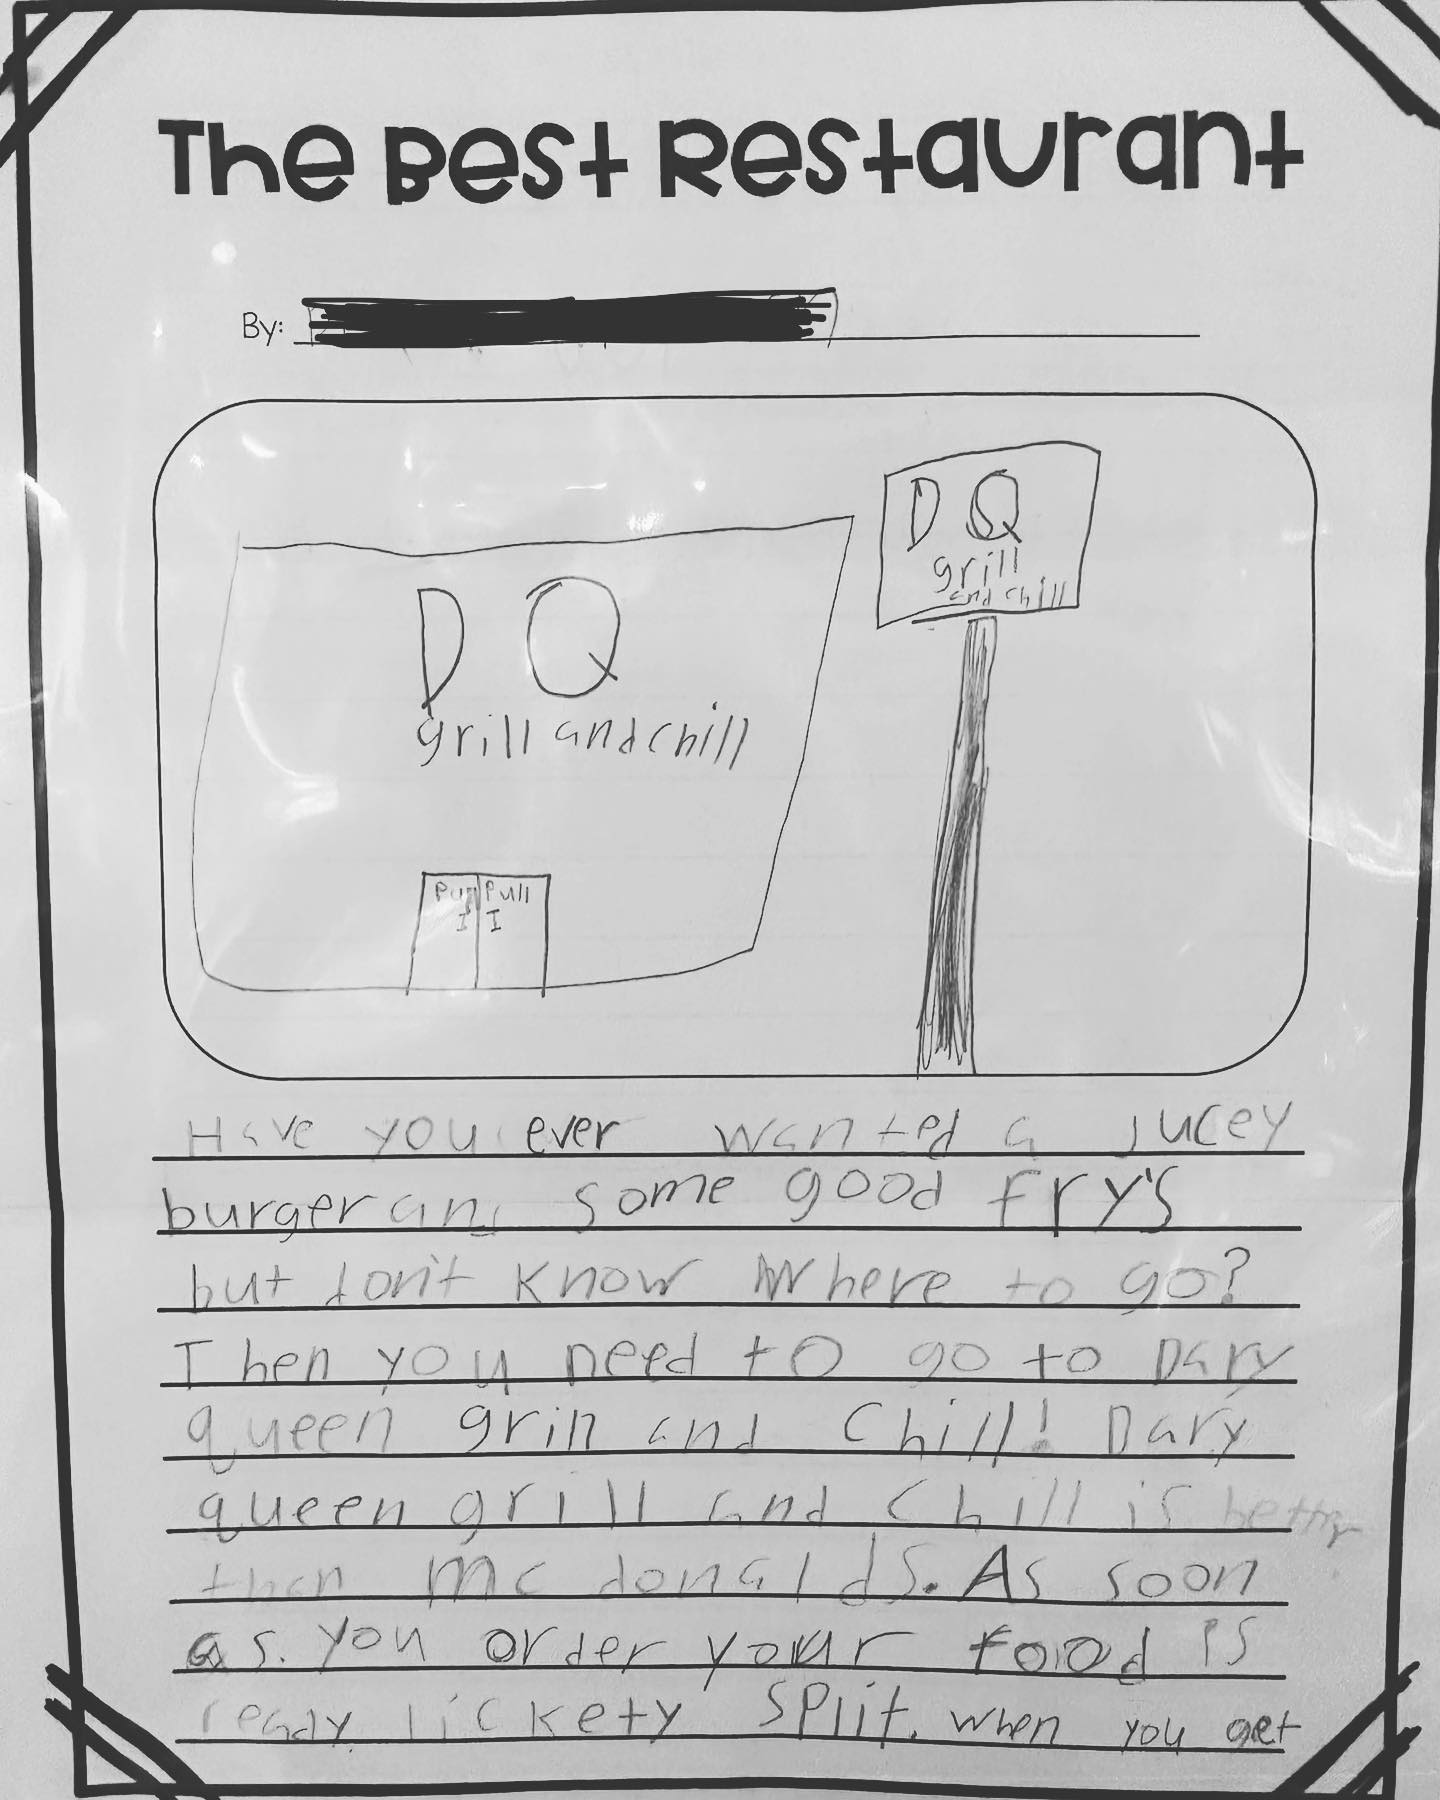 The Best Restaurant
By:
D Q
grill
and chill
D Q
grill and chill
Pull Pull
Have you ever wanted a jucey
burger an some good fry's
but don't know where to go?
Then you need to go to Dary
queen grill and Chill! Dary
queen grill and Chill is better
than mc donalds. As soon
as. you order your food is
ready lickety split. when you get